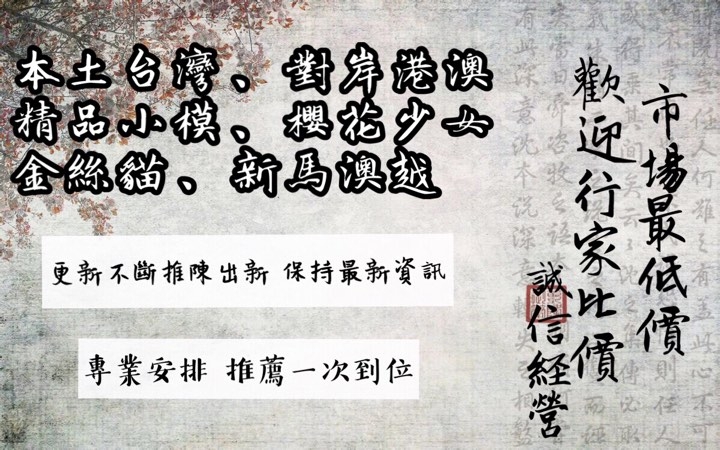 本土台灣、對岸港澳
精品小模、櫻花少女
金絲貓、新馬澳越
更新不斷推陳出新 保持最新資訊
專業安排 推薦一次到位
市場最低價
歡迎行家比價
誠信經營